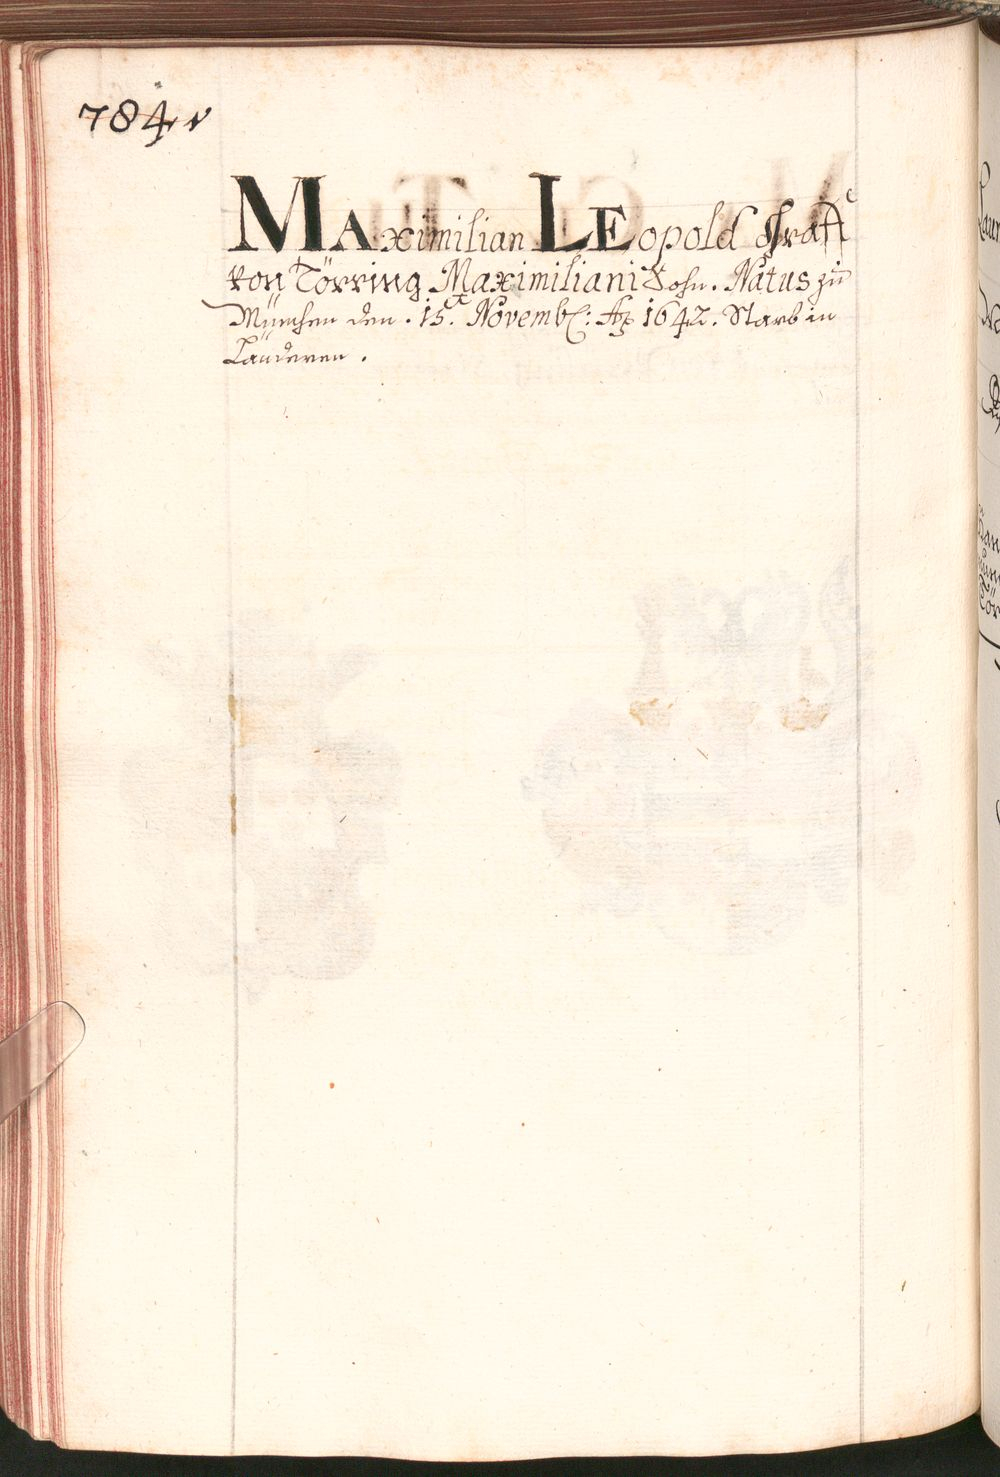 784v
MAximilian LEopold Graff
von Törring Maximiliani Sohn. Natus zu
München den. 15. Novemb: Aº 1642. Starb in
Länderen.